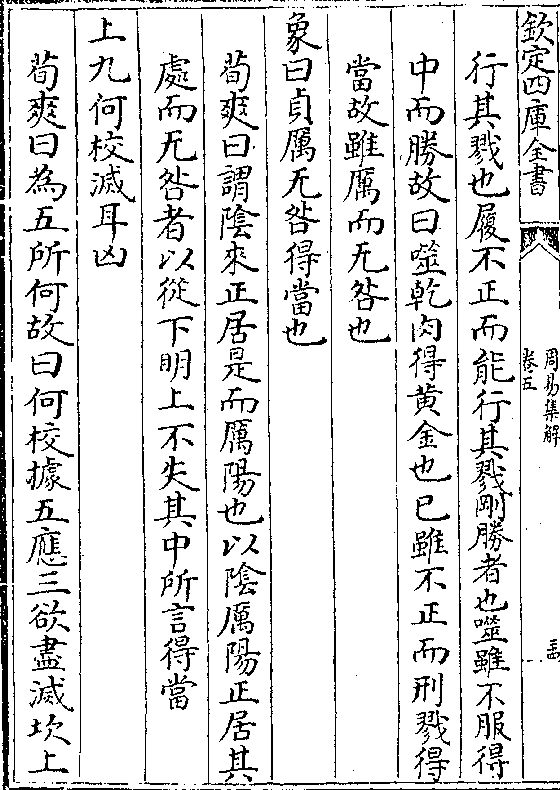 欽定四庫全書
周易集解
卷五
行其戮也履不正而能行其戮剛勝者也噬雖不服得
中而勝故曰噬乾肉得黄金也已雖不正而刑戮得
當故雖厲而无咎也
象曰貞厲无咎得當也
荀爽曰謂陰來正居是而厲陽也以陰厲陽正居其
處而无咎者以從下明上不失其中所言得當
上九何校滅耳凶
荀爽曰為五所何故曰何校據五應三欲盡滅坎上